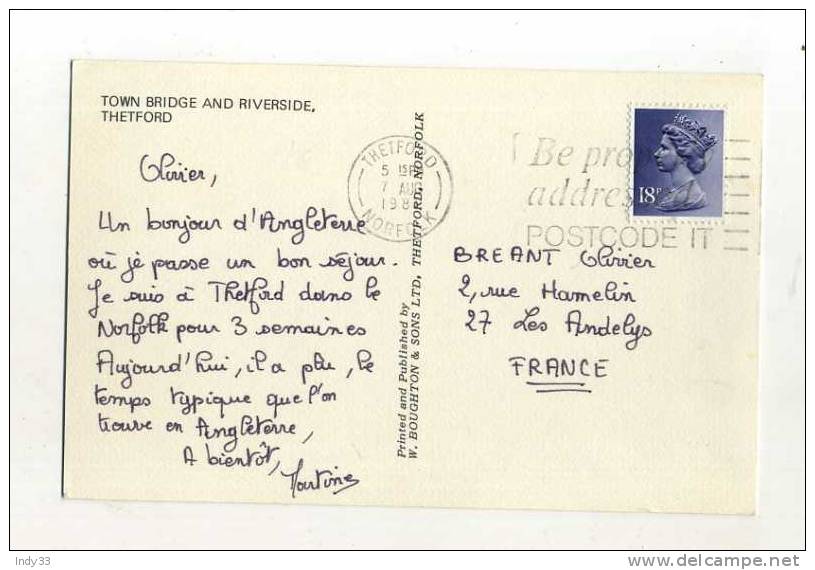 TOWN BRIDGE AND RIVERSIDE,
THETFORD
Olivier,
Un bonjour d'Angleterre
où je passe un bon séjour.
Je suis à Thetford dans le
Norfolk pour 3 semaines
Aujourd'hui, il a plu, le
temps typique que l'on
trouve en Angleterre,
A bientôt,
Martine
Printed and Published by
W. BOUGHTON & SONS LTD, THETFORD, NORFOLK
THETFORD
7 AUG
NORFOLK
Be
POSTCODE IT
18P
BREANT Olivier
2, rue Hamelin
27 Les Andelys
FRANCE
Indy33
delcampe.net